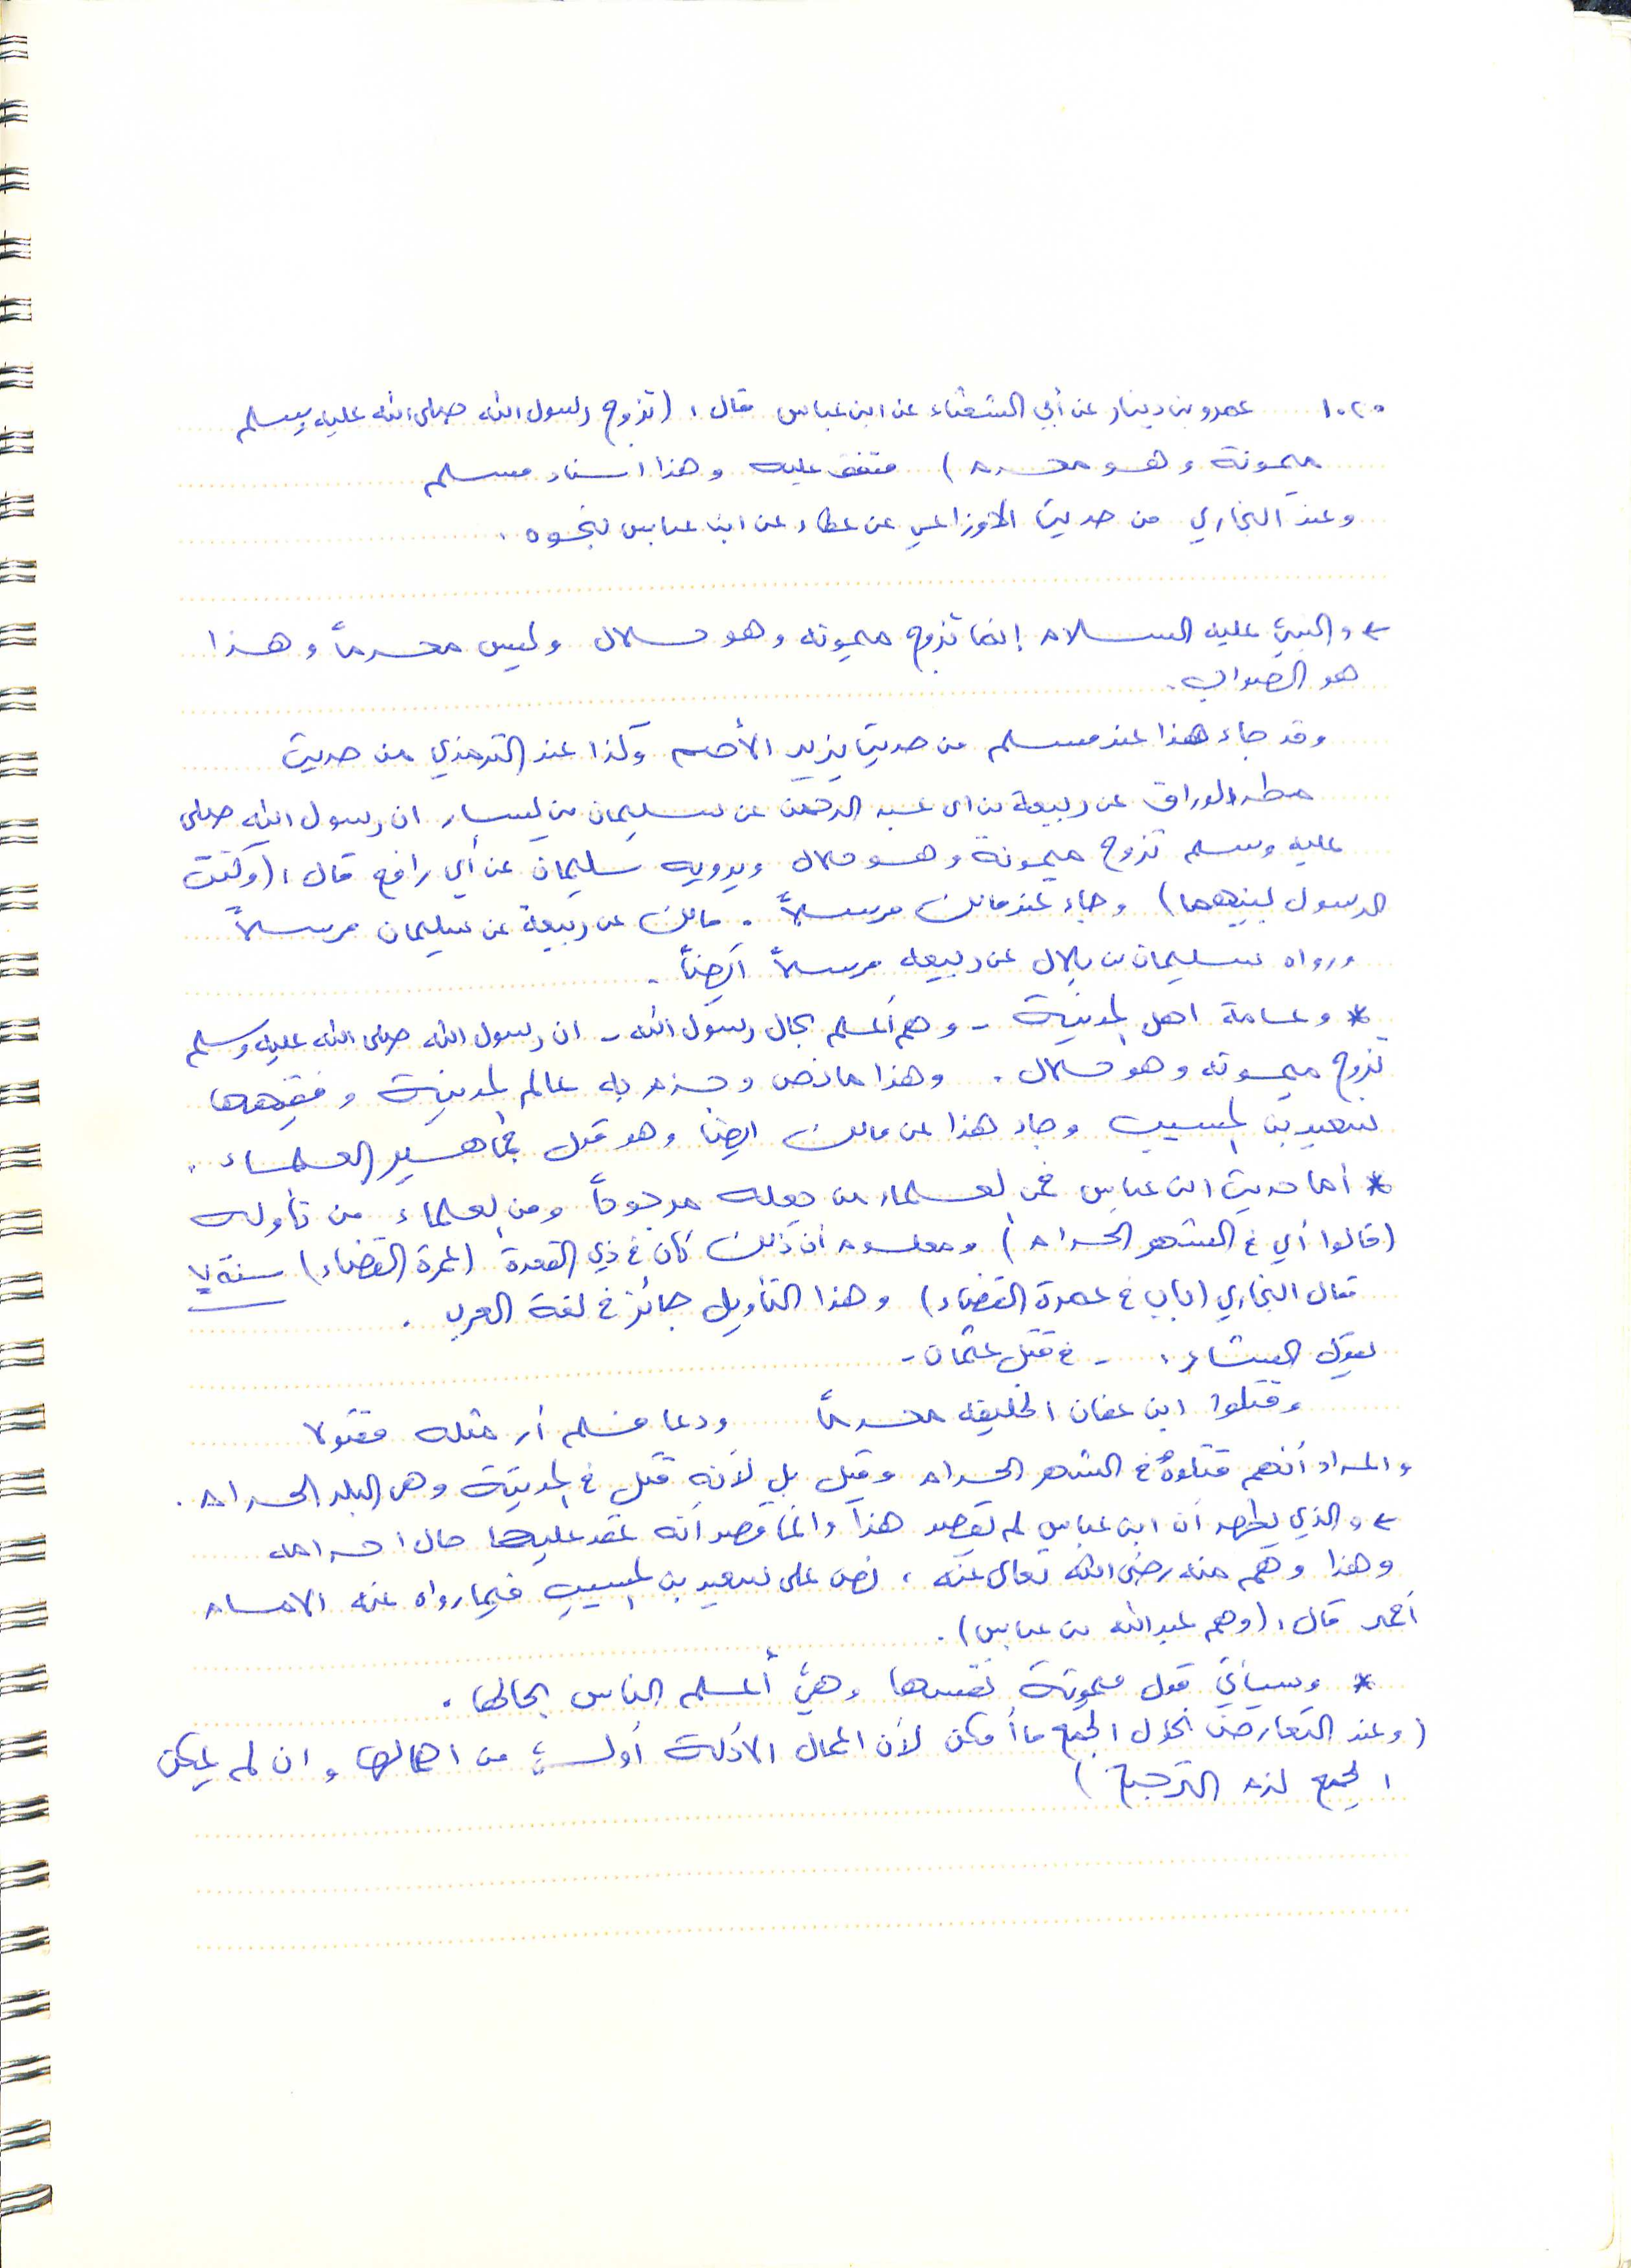 ١٠٢٠ عمرو بن دينار عن أبي الشعثاء عن ابن عباس قال: (تزوج رسول الله صلى الله عليه وسلم
ميمونة وهو محرم) متفق عليه وهذا اسناد مسلم
وعند البخاري من حديث الأوزاعي عن عطاء عن ابن عباس نحوه.
← والنبي عليه السلام إنما تزوج ميمونه وهو حلال وليس محرماً وهذا
هو الصواب.
وقد جاء هذا عند مسلم من حديث يزيد الأصم وكذا عند الترمذي من حديث
مطر الوراق عن ربيعة بن ابي عبد الرحمن عن سليمان بن يسار ان رسول الله صلى
عليه وسلم تزوج ميمونة وهو حلال ويرويه سليمان عن أبي رافع قال: (وكنت
الرسول بينهما) وجاء عند مالك مرسلاً. مالك عن ربيعة عن سليمان مرسلاً
ورواه سليمان بن بلال عن ربيعه مرسلاً أيضاً.
* وعامة اهل المدينة - وهم أعلم بحال رسول الله - ان رسول الله صلى الله عليه وسلم
تزوج ميمونه وهو حلال. وهذا ما نص وجزم به عالم المدينة وفقيهها
سعيد بن المسيب وجاء هذا عن مالك ايضا وهو قول جماهير العلماء.
* أما حديث ابن عباس فمن العلماء من جعله مرجوحاً ومن العلماء من تأوله
(قالوا أي في الشهر الحرام) ومعلوم أن ذلك كان في ذي القعدة (عمرة القضاء) سنة ٧
فقال البخاري (باب في عمرة القضاء) وهذا التأويل جائز في لغة العرب.
يقول الشاعر: - في قتل عثمان -
وقتلوا ابن عفان الخليفه محرماً ودعا فلم أر مثله مقتولا
والمراد أنهم قتلوه في الشهر الحرام وقيل بل لأنه قتل في المدينة وهي البلد الحرام.
← والذي يظهر أن ابن عباس لم يقصد هذا وانما قصد أنه عقد عليها حال احرامه
وهذا وهم منه رضى الله تعالى عنه، نص على سعيد بن المسيب فيما رواه عنه الامام
أحمد قال: (وهم عبد الله بن عباس).
* وسيأتي قول ميمونة نفسها وهي أعلم الناس بحالها.
(وعند التعارض نحاول الجمع ما أمكن لأن اعمال الأدلة أولى من اهمالها وان لم يمكن
الجمع لزم الترجيح)